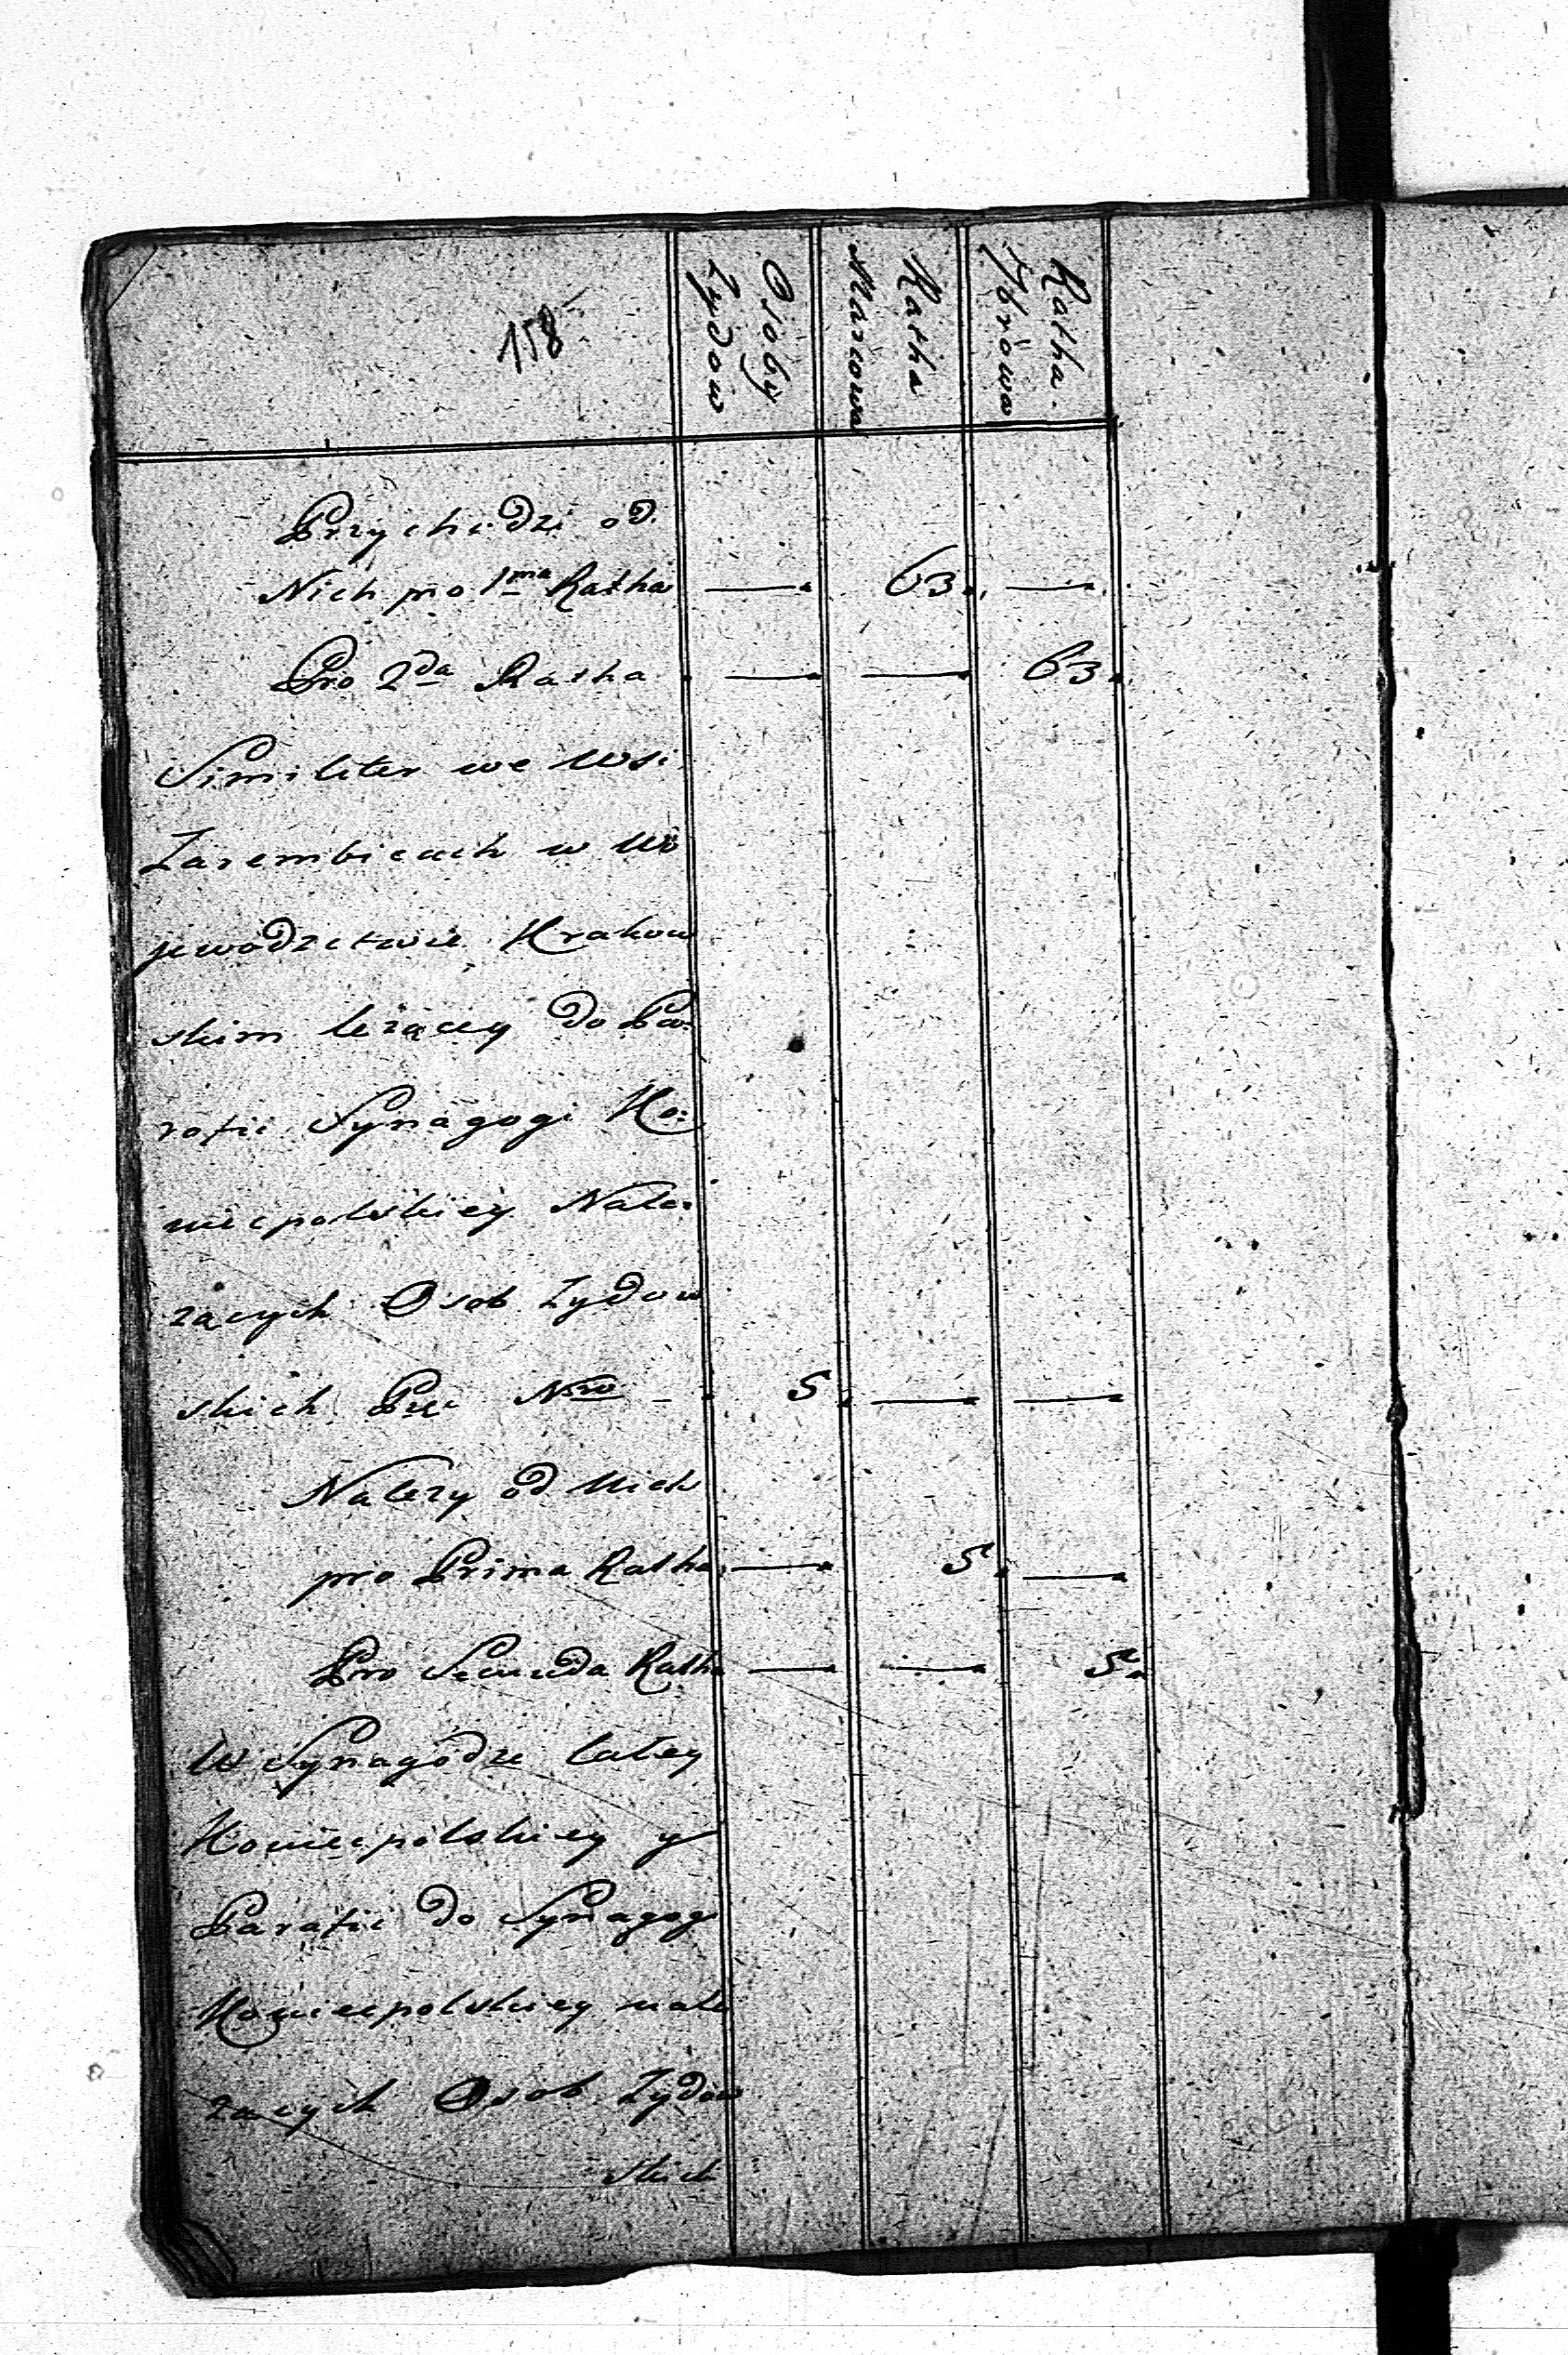 158
Osoby Zydow
Ratha Marcowa
Ratha 7browa
Przychodzi od
Nich pro 1ma Ratha — 63. —
Pro 2da Ratha — — 63.
Similiter we Wsi
Zarembicach w Wo
jewodztwie Krakow
skim leżącey do Pa:
rafii Synagogi Ko:
niecpolskiey Nale:
zących Osob Zydow
skich Nro - 5. — —
Nalezy od Nich
pro Prima Ratha — 5. —
Pro Secunda Ratha — — 5.
W Synagodze Całey
Koniecpolskiey y
Parafii do Synagogi
Koniecpolskiey nale
zących Osob Zydow
skich